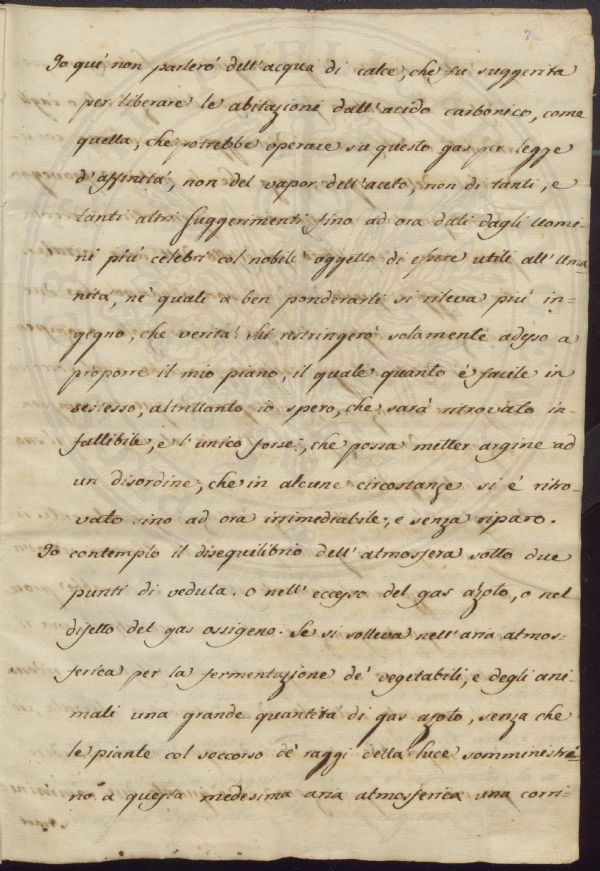 Io qui non parlerò dell'acqua di calce, che fu suggerita
per liberare le abitazioni dall'acido carbonico, come
quella, che potrebbe operare su questo gas per legge
d'affinità, non del vapor dell'aceto, non di tanti, e
tanti altri suggerimenti fino ad ora dati dagli Uomi-
ni più celebri col nobile oggetto di essere utili all'Uma
nità, ne' quali a ben ponderarli si rileva più in-
gegno, che verità: Mi restringerò solamente adesso a
proporre il mio piano, il quale quanto è facile in
sestesso, altrettanto io spero, che sarà ritrovato in-
fallibile, e l'unico forse, che possa metter argine ad
un disordine, che in alcune circostanze si è ritro-
vato sino ad ora irrimediabile, e senza riparo.
Io contemplo il disequilibrio dell'atmosfera sotto due
punti di veduta. o nell'eccesso del gas azoto, o nel
difetto del gas ossigeno. Se si solleva nell'aria atmos-
ferica per la fermentazione de' vegetabili, e degli ani-
mali una grande quantità di gas azoto, senza che
le piante col soccorso de' raggi della luce somministri-
no a questa medesima aria atmosferica una corri-